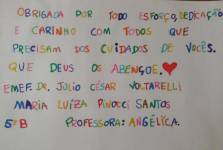 OBRIGADA POR TODO ESFORÇO, DEDICAÇÃO
E CARINHO COM TODOS QUE
PRECISAM DOS CUIDADOS DE VOCÊS.
QUE DEUS OS ABENÇOE.
EMEF. DR. JULIO CÉSAR VOLTARELLI
MARIA LUÍZA PINOCI SANTOS
5º B PROFESSORA: ANGÉLICA.